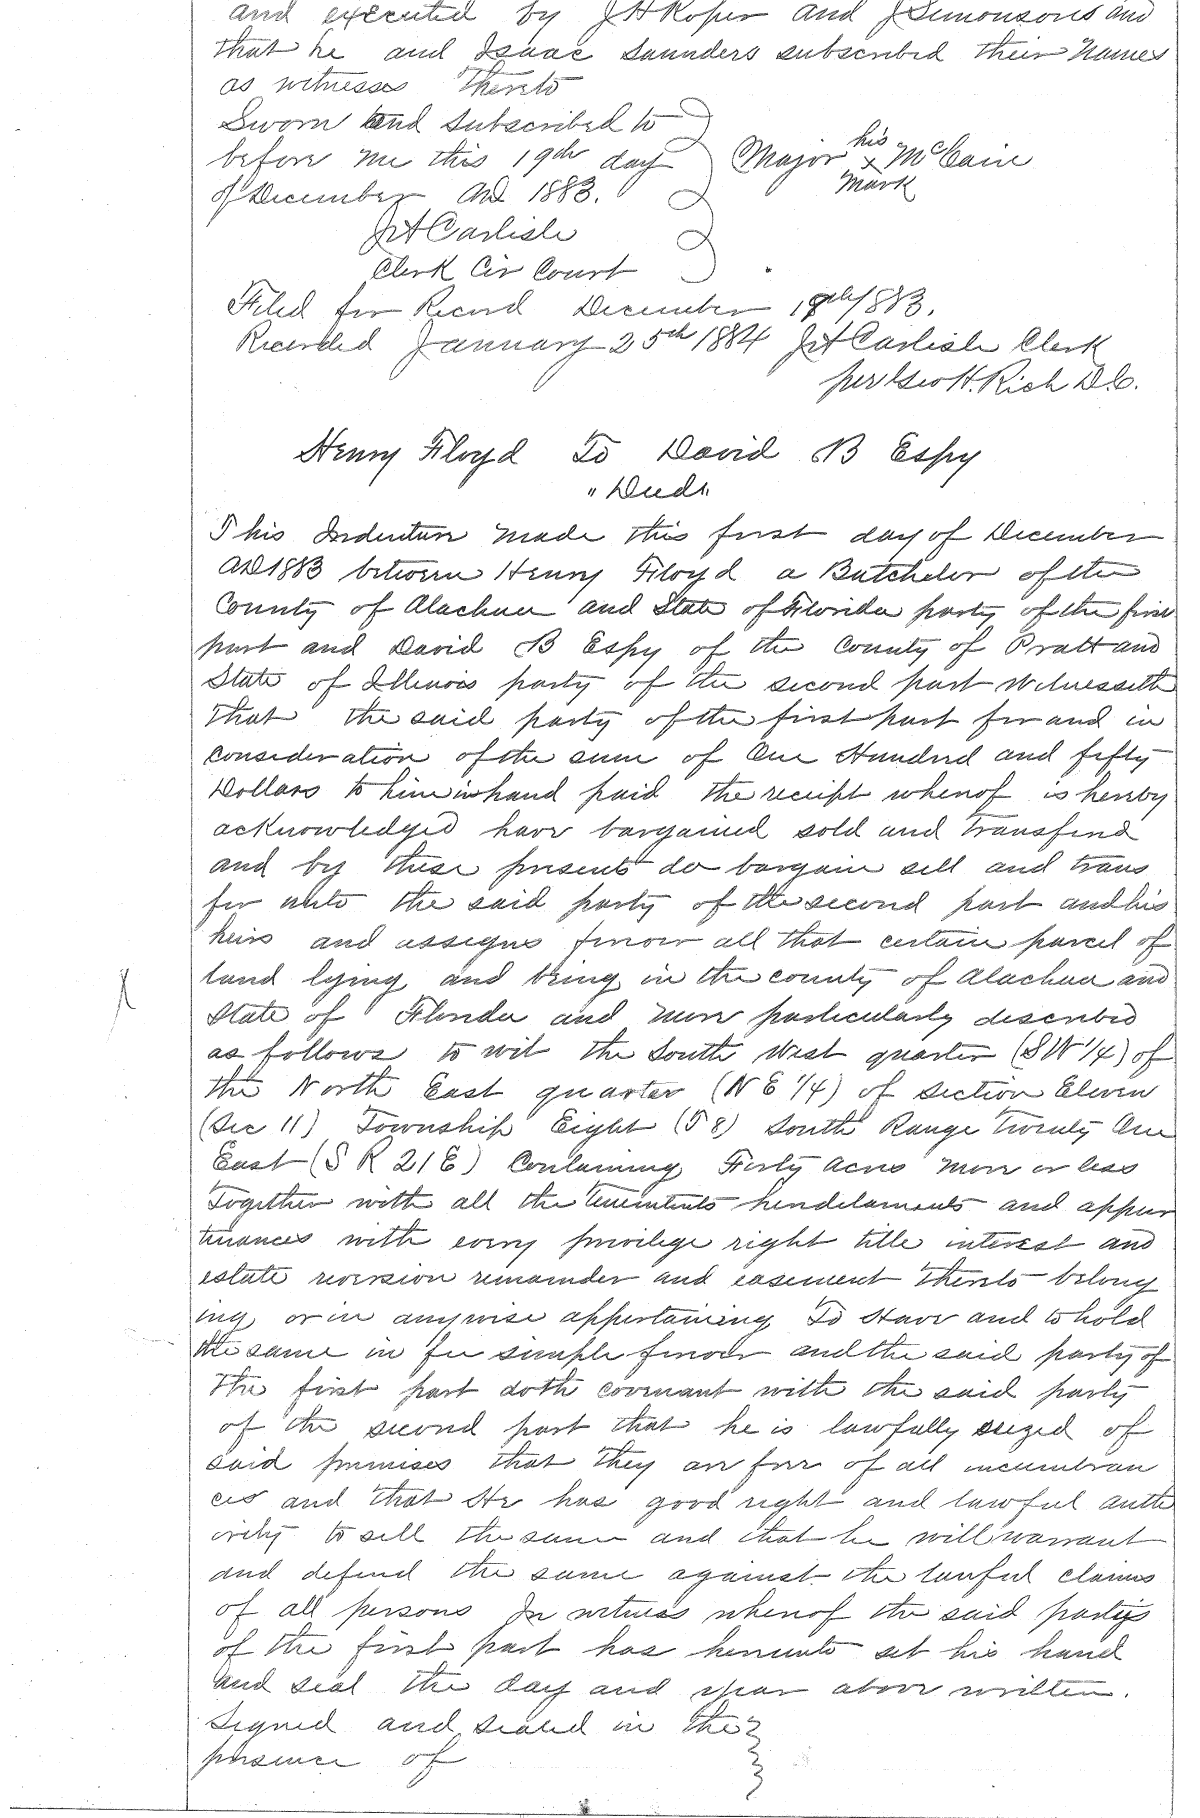 and executed by JH Roper and J Simonsons and
that he and Isaac Saunders subscribed their names
as witnesses thereto
Sworn and subscribed to
before me this 19th day
of December AD 1883.
his
Major x McCain
mark
JA Carlisle
Clerk Cir Court
Filed for Record December 19th/1883.
Recorded January 25th 1884 JA Carlisle Clerk
per Geo H. Rich D.C.
Henry Floyd To David B Espy
"Deed"
This Indenture made this first day of December
AD 1883 between Henry Floyd a Batchelor of the
County of Alachua and State of Florida party of the first
part and David B Espy of the County of Pratt and
State of Illinois party of the second part witnesseth
that the said party of the first part for and in
consideration of the sum of One Hundred and fifty
Dollars to him in hand paid the receipt whereof is hereby
acknowledged have bargained sold and transfered
and by these presents do bargain sell and trans
fer unto the said party of the second part and his
heirs and assigns forever all that certain parcel of
land lying and being in the county of Alachua and
State of Florida and more particularly described
as follows to wit the South West quarter (SW 1/4) of
the North East quarter (NE 1/4) of section Eleven
(Sec 11) Township Eight (T 8) South Range Twenty One
East (S R 21 E) Containing Forty acres more or less
Together with all the tenements hereditaments and appur
tenances with every privilege right title interest and
estate reversion remainder and easement thereto belong
ing or in anywise appertaining To Have and to hold
the same in fee simple forever and the said party of
the first part doth covenant with the said party
of the second part that he is lawfully seized of
said premises that they are free of all incumbran
ces and that He has good right and lawful auth
ority to sell the same and that he will warrant
and defend the same against the lawful claims
of all persons In witness whereof the said party
of the first part has hereunto set his hand
and seal the day and year above written.
Signed and sealed in the
presence of